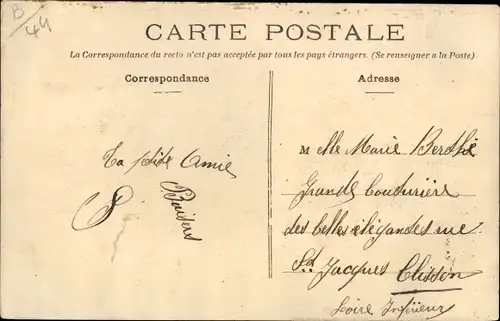 B/44
CARTE POSTALE
La Correspondance du recto n'est pas acceptée par tous les pays étrangers. (Se renseigner à la Poste).
Correspondance
Adresse
Ta ptite Amie
Baisers
Melle Marie Berthe
Grande Couturière
des belles élégandes rue
St Jacques Clisson
Loire Inférieur